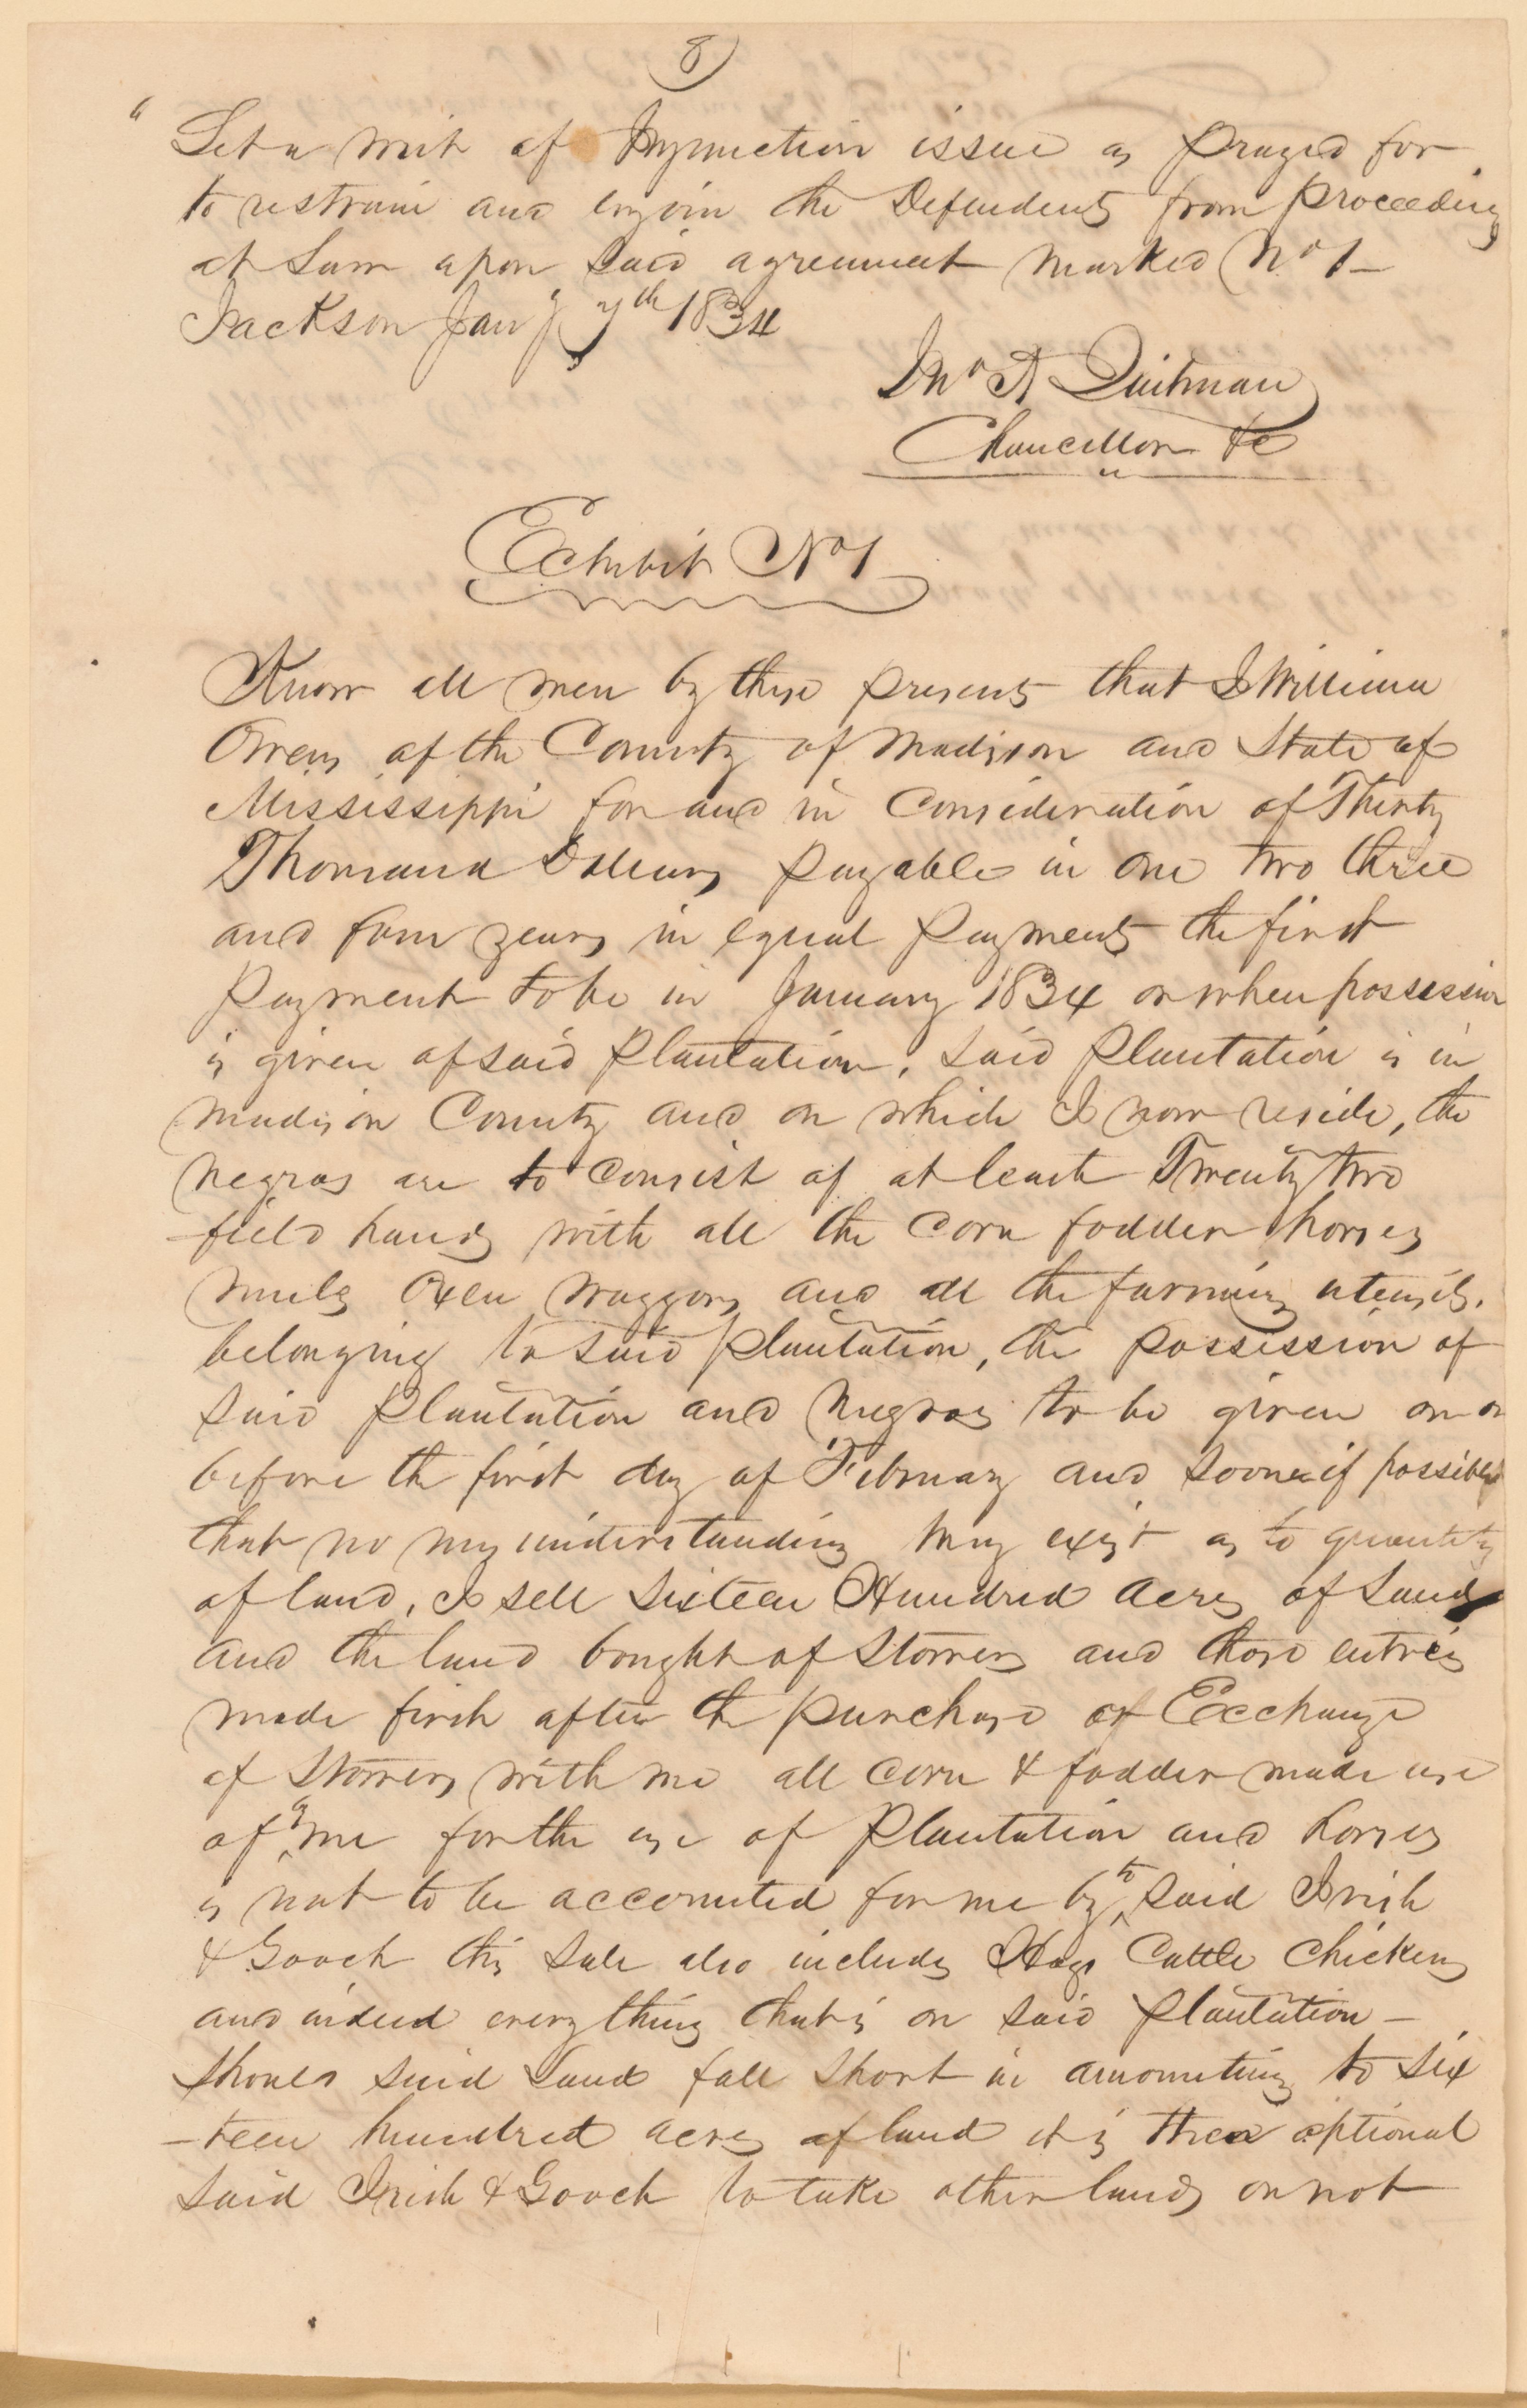 8
" Let a writ of Injunction issue as prayed for
to restrain and enjoin the Defendents from proceeding
at Law upon said agreement marked No 1 –
Jackson Jany 7th 1834
Jno A Quitman
Chancellor &c
Exhibit No 1
Know all men by these presents that I William
Owens of the County of Madison and State of
Mississippi for and in Consideration of Thirty
Thousand Dollars payable in one two three
and four years in equal payments the first
payment to be in January 1834 or when possession
is given of said plantation, said plantation is in
Madison County and on which I now reside, the
negros are to consist of at least Twenty two
field hands with all the corn fodder horses
mules Oxen waggons and all the farming utensils.
belonging to said plantation, the possession of
said plantation and negros to be given on or
before the first day of February and sooner if possible
that no misunderstanding may exist as to quantity
of land, I sell sixteen Hundred acres of Land
and the land bought of Storrers and those entries
made first after the purchase of Exchange
of Storrers with me all corn & fodder made use
of by me for the use of plantation and horses
is not to be accounted for me by to said Irish
& Gooch this sale also includes Hogs Cattle Chickens
and indeed everything that is on said plantation –
should said Land fall short in amounting to six
–teen hundred acres of land it is then optional
said Irish & Gooch to take other lands or not